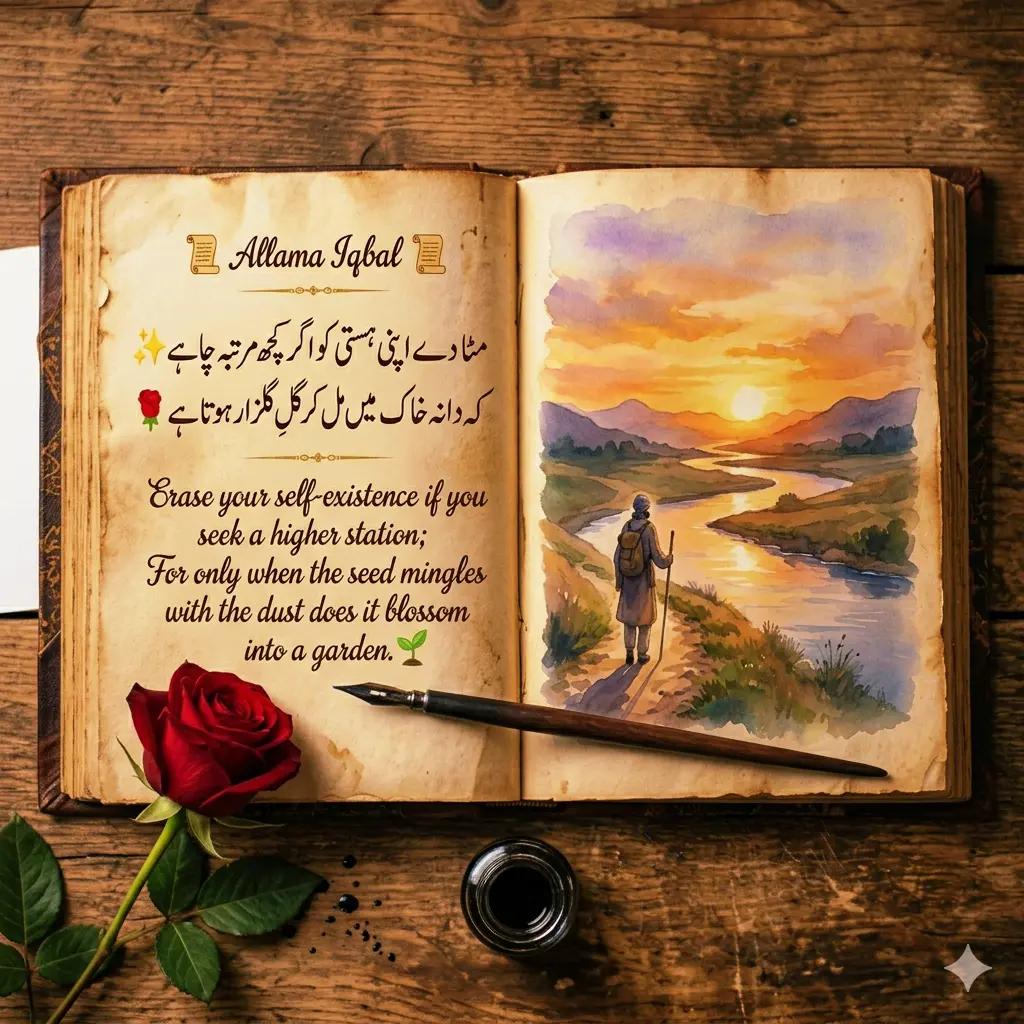 📜 Allama Iqbal 📜
مٹا دے اپنی ہستی کو اگر کچھ مرتبہ چاہے ✨
کہ دانہ خاک میں مل کر گلِ گلزار ہوتا ہے 🌹
Erase your self-existence if you
seek a higher station;
For only when the seed mingles
with the dust does it blossom
into a garden. 🌱